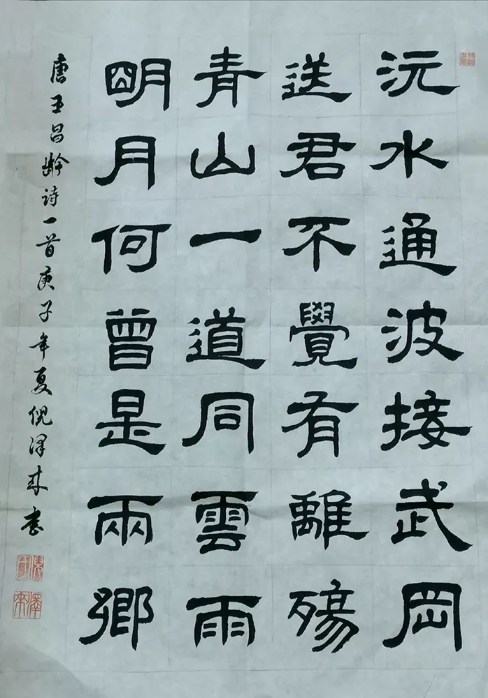 沅水通波接武岡
送君不覺有離殤
青山一道同雲雨
明月何曾是兩鄉
唐王昌齡詩一首庚子年夏倪澤書